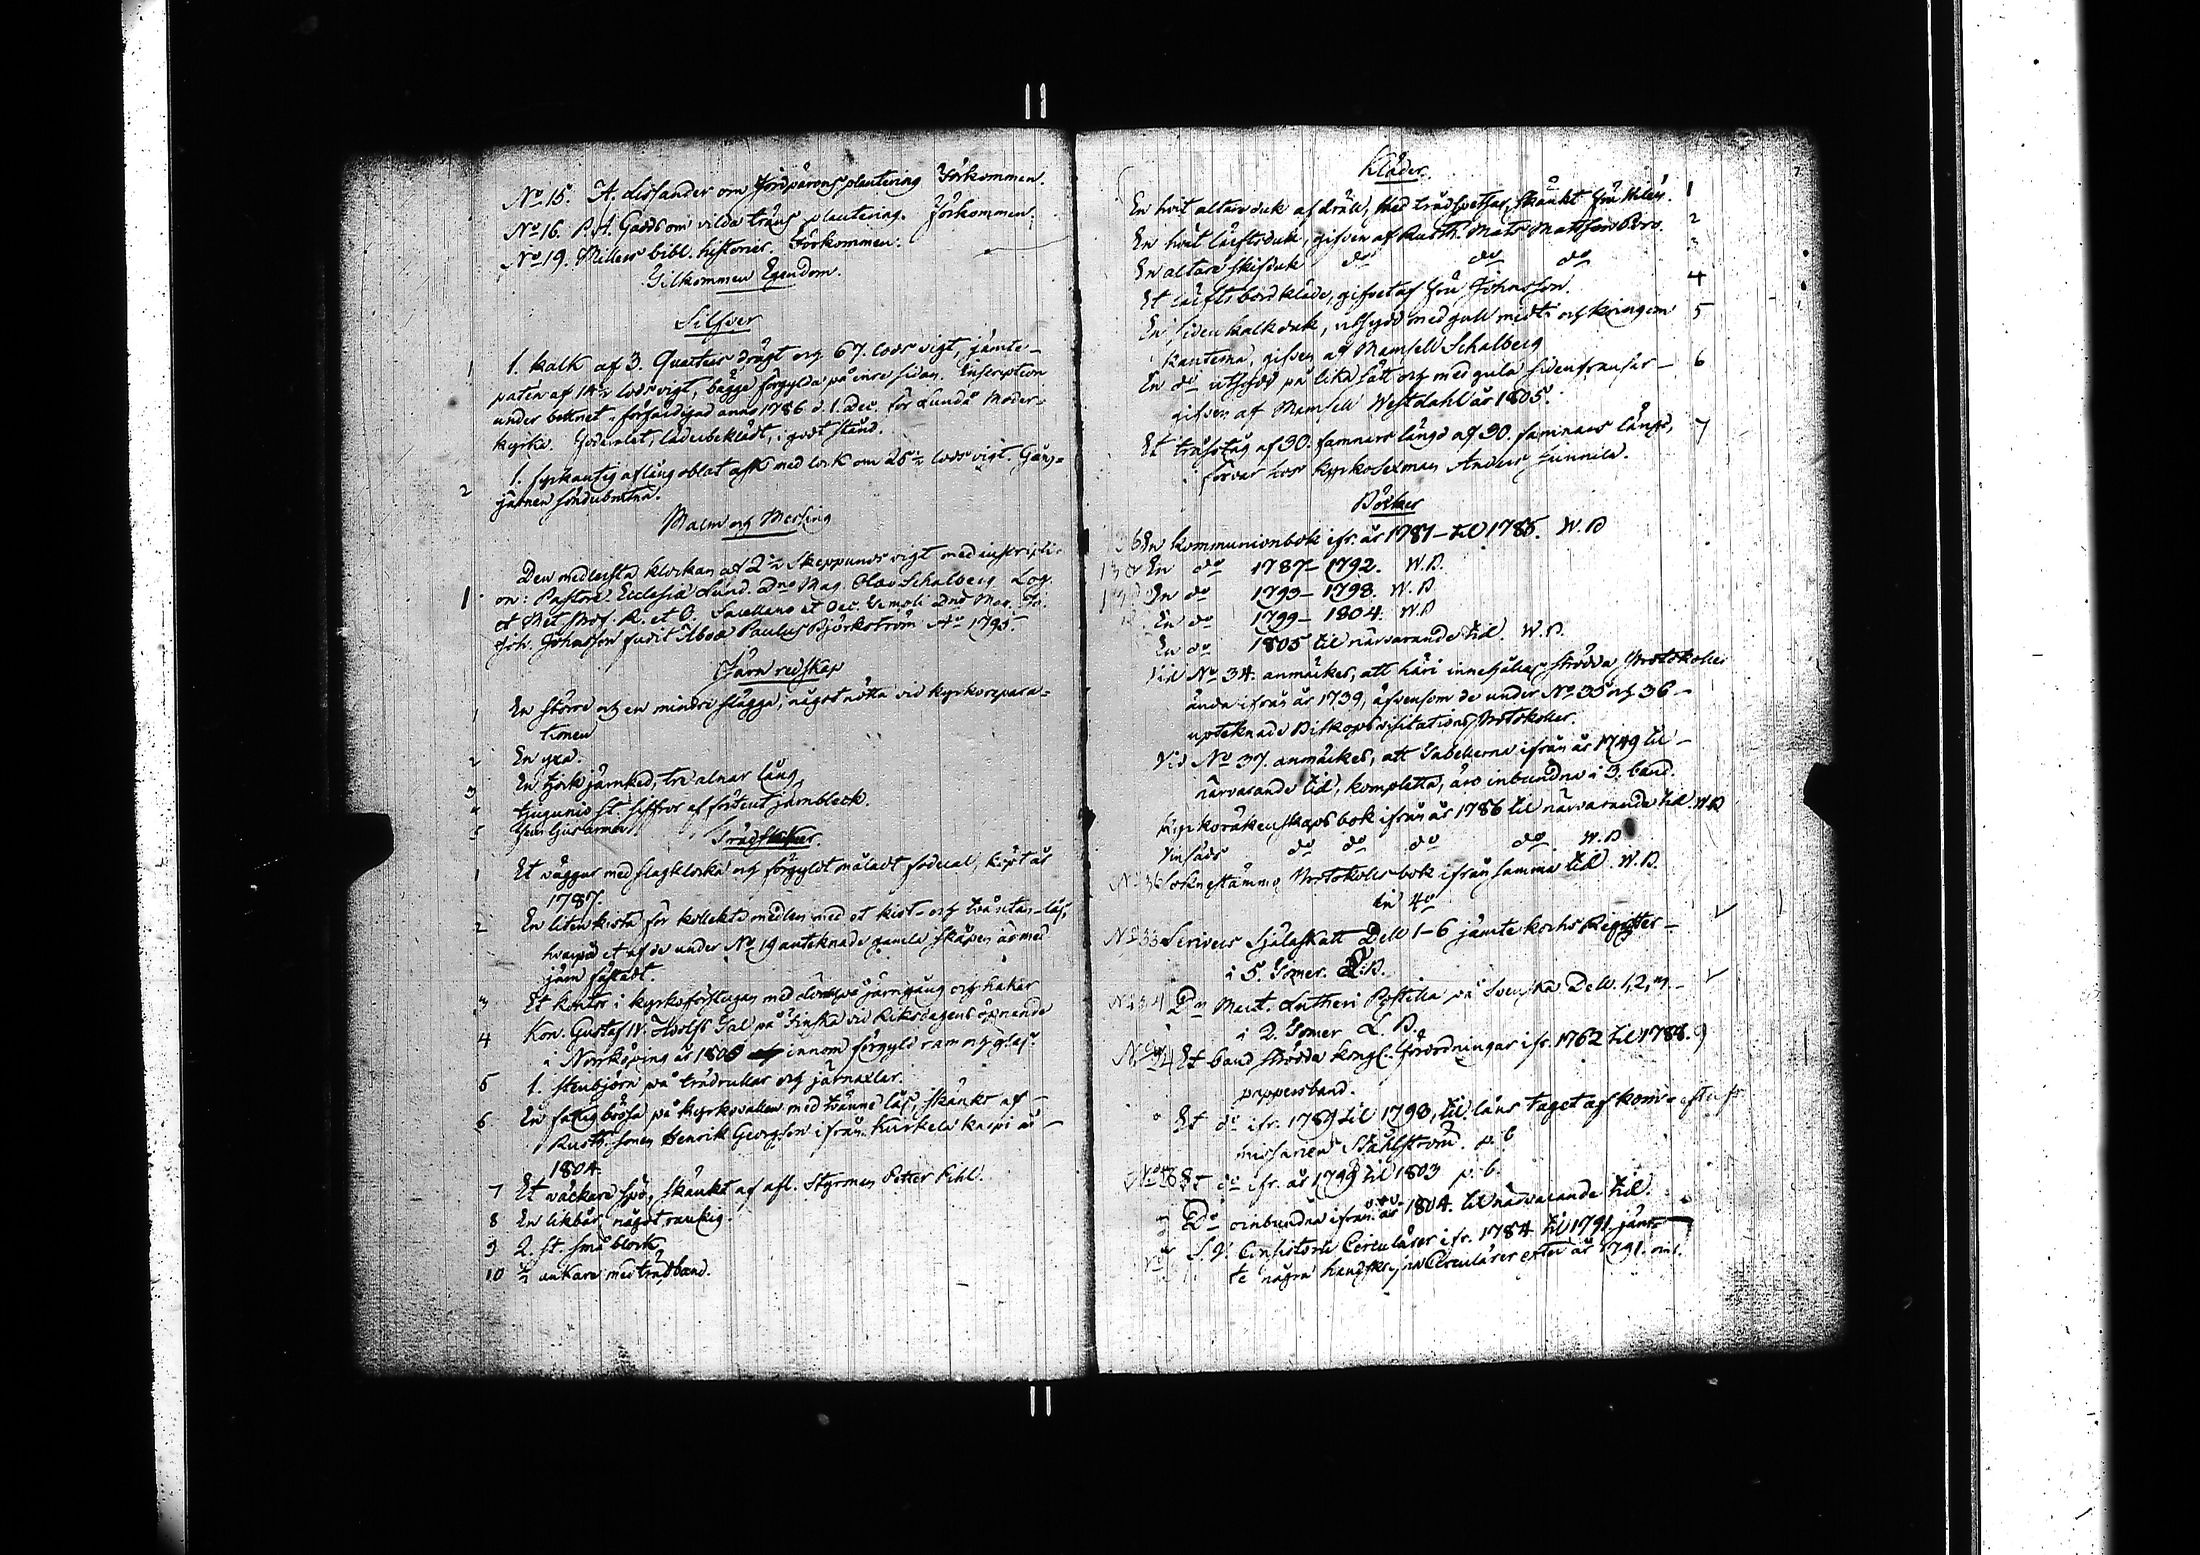 No 15. A. Lissander om Jordpärons plantering Förkommen.
No 16. P. A. Gadds om vilda träns plantering. Förkommen.
No 19. Millers bibl. historier. Förkommen.
Tilkommen Egendom.
Silfver
1 1. kalk af 3. Quarters drägt och 67. lods vigt, jämte
paten af 14½ lods vigt, bägge förgylda på inre sidan. Inscription
under bottnet: förfärdigad anno 1786 d. 1. Dec. för Lundå Moder-
kyrka. Foderalet, läderbeklädt, i godt stånd.
2 1. fyrkantig aflång oblat ask med lock om 25½ lods vigt. Gång=
järnen sönderbrutna.
Malm och Messing
1 Den medlersta klockan af 2½ Skeppunds vigt med inscripti-
on: Pastore Ecclesiæ Lund. Dno Mag. Olao Schalberg Log.
et Met. Prof. R. et O. Sacellano et Oec. Templi Dno Mag.
Joh. Johansson fudit Åboæ Paulus Björkström Ao 1795.
Järn redskap
1 En större och en mindre slägga, något nötta vid kyrkorepara=
tionen
2 En yxa.
3 En tjock järnked, tre alnar lång
4 Tjugunio st. siffror af förtent järnbleck.
5 ljusarmar
Trädsaker.
1 Et väggur med slagklocka och förgyldt måladt foderal, köpt år
1787.
2 En liten kista för kollekt medlen med et kist- och tvåntan-lås,
hvarpå et af de under No 19 anteknade gamla skåpen är med
järn fästadt
3 Et kontor i kyrkoförstugan med dörr på järngång och hakar
4 Kon. Gustaf IV. Adolfs Tal på Finska vid Riksdagens öpnande
i Norrköping år 1800 innom förgyld ram och glas.
5 1. stenbjörn på trädrullar och järnaxlar.
6 En fattigbössa på kyrkovallen med tvänne lås, skänkt af
Rusth. sonen Henrik Georgsson ifrån Kurkela Kaspi år
1804.
7 Et väckare spö, skänkt af afl. Styrman Petter Pihl.
8 En likbår, något rankig.
9 2. st. små block
10 ½ ankare med trädband.
Kläder.
En hvit altareduk af dräll, med trädspetsar, skänkt Fru 1
En hvit läriftsduk, gifven af Rusth. Mats Mattsson 2
En altare skifduk do do do 3
Et läriftsbordkläde, gifvet af Fru Johansson 4
En siden kalkduk, utsydd med gull midt i och kringom 5
kanterna, gifven af Mamsell Schalberg
En do utsydd på lika sätt och med gula sidenfransar 6
gifven af Mamsell Westdahl år 1805.
Et träsståg af 30. famnars längd af 30. famnars längd, 7
i förvar hos Kyrkosexman Anders Funnila.
Böcker
En kommunionbok ifr. år 1781 til 1786. W.B
En do 1787-1792. W.B.
En do 1793-1798. W.B
En do 1799-1804. W.B
En do 1805 til närvarande tid. W.B.
Vid No 34. anmärkes, att häri innehållas strödda Protokoller
ända ifrån år 1739, äfvensom de under No 35 och 36
upteknade Biskops visitations Protokoller.
Vid No 37. anmärkes, att Tabellerne ifrån år 1749 til
närvarande tid, kompletta, äro inbundna i 3. band.
Kyrkoräkenskaps bok ifrån år 1786 til närvarande tid W.B
Vinsäds do do do do W.B
Soknestämmo Protokolls bok ifrån samma tid. W.B.
in 4o
Scrivers Själaskatt Del 1-6 jämte Kochs Register
i 5. Tomer. L.B.
Dr. Mart. Lutheri Postilla på Svenska Del. 1, 2,
i 2. Tomer L.B.
Et band strödda Kongl. förordningar ifr. 1762 til 1788.
pappersband.
Et do ifr. 1789 til 1798, til låns taget af kom-
missarien Ståhlström. p.b
Et do ifr. år 1799 til 1803 p.b.
Do oinbundna ifrån år 1804. til närvarande tid.
S. V. Consistorii Circulärer ifr. 1784 til 1791. jäm-
te några handskrifna Circulärer efter år 1791.